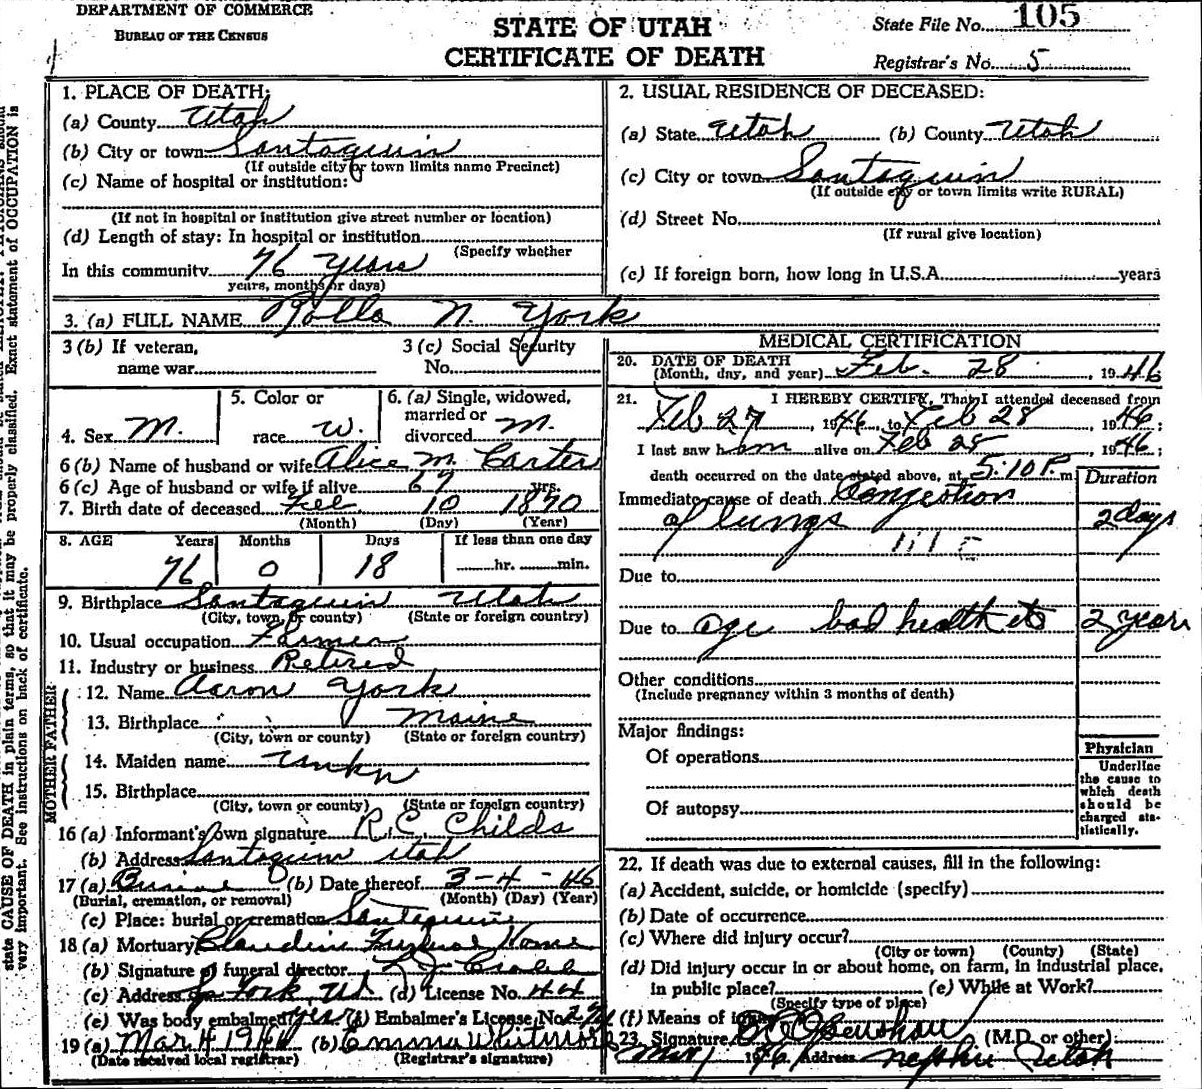 DEPARTMENT OF COMMERCE
BUREAU OF THE CENSUS
STATE OF UTAH
CERTIFICATE OF DEATH
State File No. 105
Registrar's No. 5
1. PLACE OF DEATH:
(a) County Utah
(b) City or town Santaquin
(If outside city or town limits name Precinct)
(c) Name of hospital or institution:
(If not in hospital or institution give street number or location)
(d) Length of stay: In hospital or institution
(Specify whether
In this community 76 years
years, months or days)
2. USUAL RESIDENCE OF DECEASED:
(a) State Utah (b) County Utah
(c) City or town Santaquin
(If outside city or town limits write RURAL)
(d) Street No.
(If rural give location)
(e) If foreign born, how long in U.S.A. years
3. (a) FULL NAME Rolla N. York
3 (b) If veteran,
name war
3 (c) Social Security
No.
4. Sex M.
5. Color or
race W.
6. (a) Single, widowed,
married or
divorced M.
6 (b) Name of husband or wife Alice M. Carter
6 (c) Age of husband or wife if alive 67 yrs.
7. Birth date of deceased Feb 10 1870
(Month) (Day) (Year)
8. AGE Years Months Days If less than one day
76 0 18 hr. min.
9. Birthplace Santaquin Utah
(City, town, or county) (State or foreign country)
10. Usual occupation Farmer
11. Industry or business Retired
FATHER
12. Name Aaron York
13. Birthplace Maine
(City, town or county) (State or foreign country)
MOTHER
14. Maiden name Unkn
15. Birthplace
(City, town or county) (State or foreign country)
16 (a) Informant's own signature R.C. Childs
(b) Address Santaquin Utah
17 (a) Burial (b) Date thereof 3-4-46
(Burial, cremation, or removal) (Month) (Day) (Year)
(c) Place: burial or cremation Santaquin
18 (a) Mortuary Claudin Funeral Home
(b) Signature of funeral director
(c) Address Sp Fork, Ut (d) License No. 44
(e) Was body embalmed? yes (f) Embalmer's License No.
19 (a) Mar 4 1946 (b) Emma Whitmore
(Date received local registrar) (Registrar's signature)
MEDICAL CERTIFICATION
20. DATE OF DEATH
(Month, day, and year) Feb. 28, 1946
21. I HEREBY CERTIFY, That I attended deceased from
Feb 27, 1946, to Feb 28 1946;
I last saw him alive on Feb 28 1946;
death occurred on the date stated above, at 5:10 P. m
Duration
Immediate cause of death Congestion
of lungs 2 days
Due to
Due to age bad health etc 2 years
Other conditions
(Include pregnancy within 3 months of death)
Major findings:
Of operations
Of autopsy
Physician
Underline
the cause to
which death
should be
charged sta-
tistically.
22. If death was due to external causes, fill in the following:
(a) Accident, suicide, or homicide (specify)
(b) Date of occurrence
(c) Where did injury occur?
(City or town) (County) (State)
(d) Did injury occur in or about home, on farm, in industrial place,
in public place? (e) While at Work?
(Specify type of place)
(f) Means of
23. Signature (M.D. or other)
Mar 1 1946 Address Nephi Utah
state CAUSE OF DEATH in plain terms, so that it may be properly classified. Exact statement of OCCUPATION is
very important. See instructions on back of certificate.